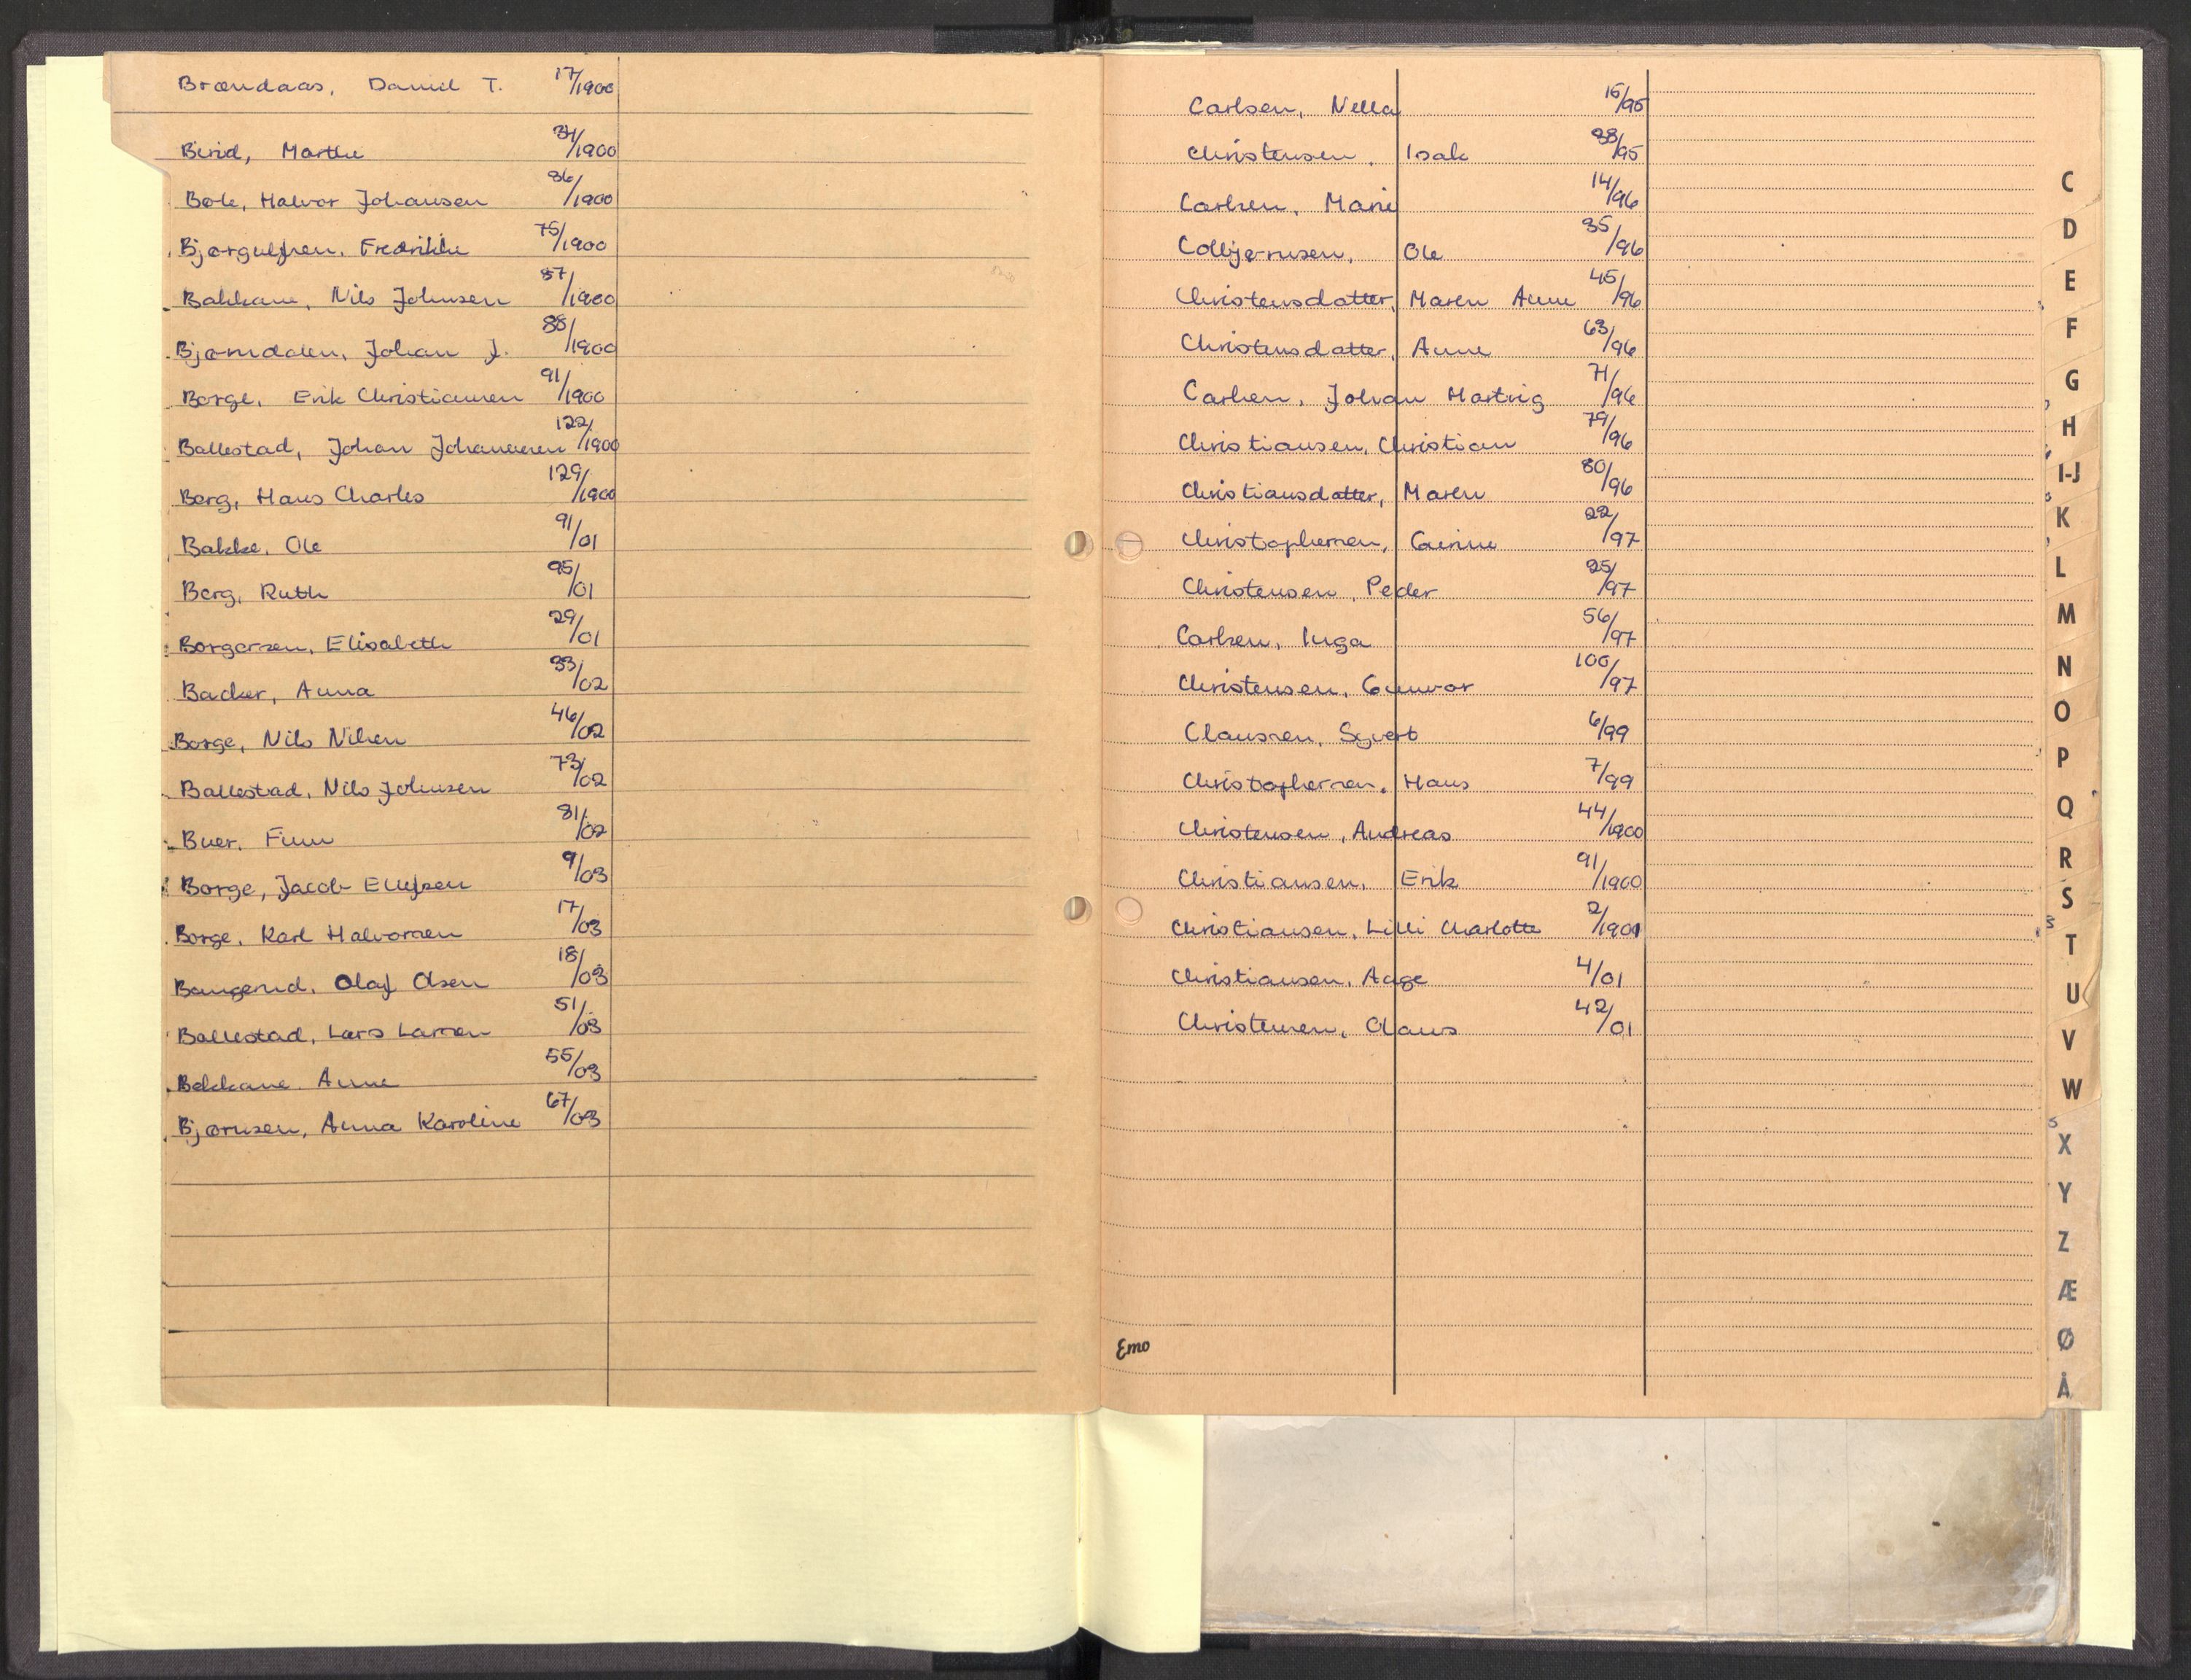 Brændaas, Daniel T. 17/1900
Birid, Marthe 34/1900
Bole, Halvor Johansen 36/1900
Bjørgulfsen, Fredrikke 75/1900
Bakkane, Nils Johnsen 87/1900
Bjørndalen, Johan J. 88/1900
Borge, Erik Christiansen 91/1900
Ballestad, Johan Johannesen 122/1900
Berg, Hans Charles 129/1900
Bakke, Ole 91/01
Berg, Ruth 95/01
Borgersen, Elisabeth 29/01
Backer, Anna 33/02
Borge, Nils Nilsen 46/02
Ballestad, Nils Johnsen 73/02
Buer, Finn 81/02
Borge, Jacob Ellefsen 9/03
Borge, Karl Halvorsen 17/03
Baugerud, Olaf Olsen 18/03
Ballestad, Lars Larsen 51/03
Bakkane Anne 55/03
Bjørnsen, Anna Karoline 67/03
Carlsen, Nella 15/95
Christensen, Isak 38/95
Carlsen, Marie 14/96
Colbjørnsen, Ole 35/96
Christensdatter, Maren Anne 45/96
Christensdatter, Anne 63/96
Carlsen, Johan Hartvig 71/96
Christiansen, Christian 79/96
Christiansdatter, Maren 80/96
Christophersen, Gunne 22/97
Christensen, Peder 25/97
Carlsen, Inga 56/97
Christensen, Gunvor 100/97
Claussen, Syvert 6/99
Christophersen, Hans 7/99
Christensen, Andreas 44/1900
Christiansen, Erik 91/1900
Christiansen, Lilli Charlotte 2/1901
Christiansen, Aage 4/01
Christensen, Claus 42/01
Emo
C
D
E
F
G
H
I-J
K
L
M
N
O
P
Q
R
S
T
U
V
W
X
Y
Z
Æ
Ø
Å